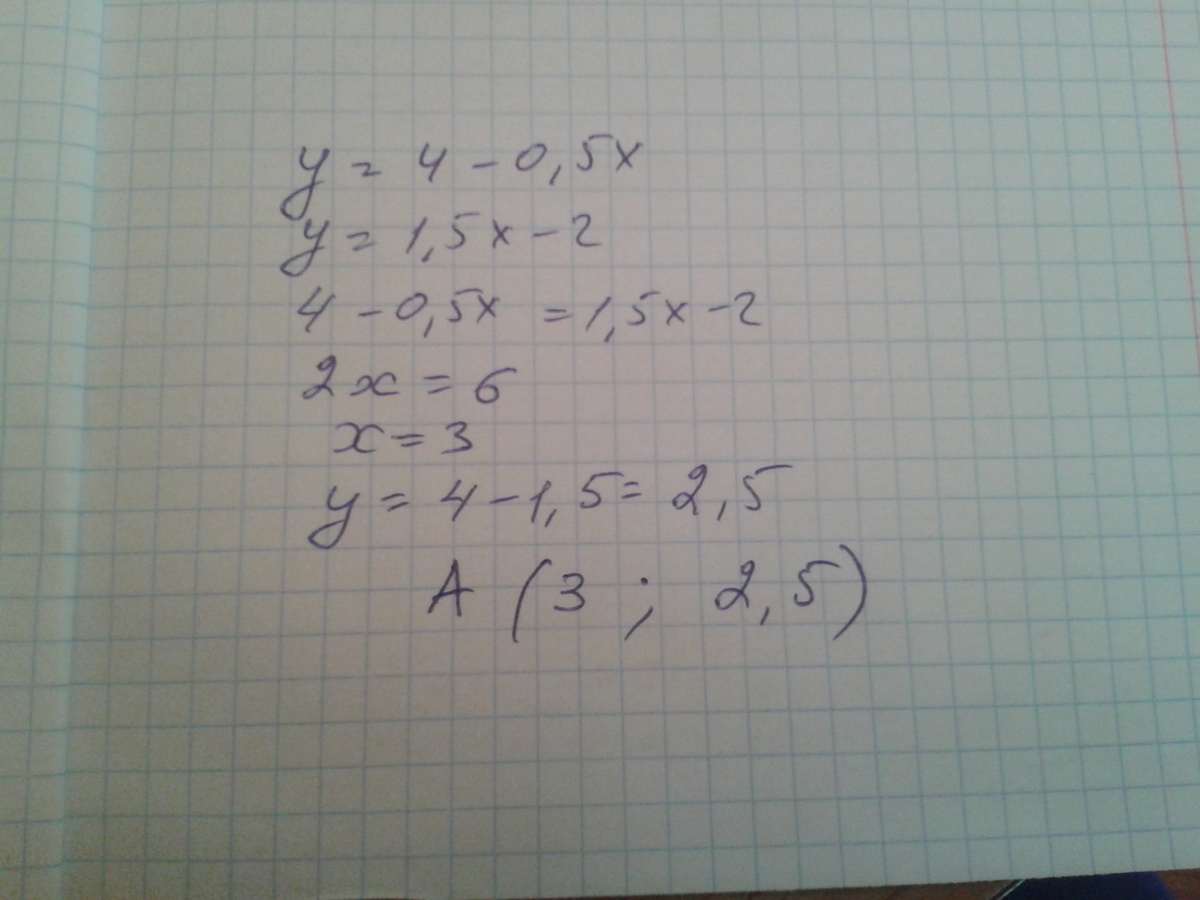 y = 4 - 0,5x
y = 1,5x - 2
4 - 0,5x = 1,5x - 2
2x = 6
x = 3
y = 4 - 1,5 = 2,5
A (3 ; 2,5)